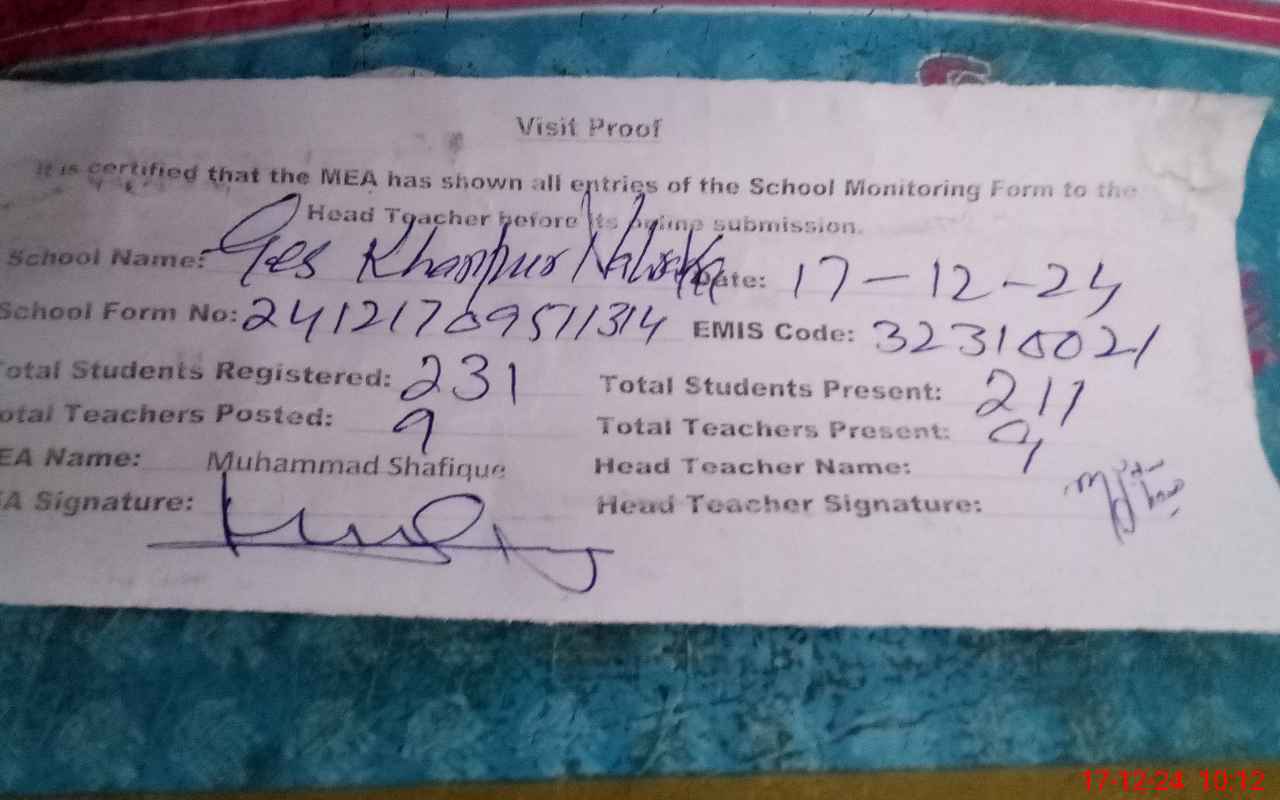 Visit Proof
It is certified that the MEA has shown all entries of the School Monitoring Form to the
Head Teacher before its online submission.
School Name: Ges Khanpur Date: 17-12-24
School Form No: 241217 EMIS Code:
Total Students Registered: 231 Total Students Present: 211
otal Teachers Posted: 9 Total Teachers Present: 9
EA Name: Muhammad Shafique Head Teacher Name:
A Signature: Head Teacher Signature:
17-12-24 10:12